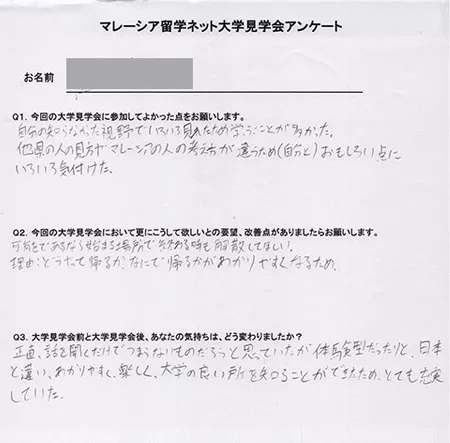 マレーシア留学ネット大学見学会アンケート
お名前
Q1. 今回の大学見学会に参加してよかった点をお願いします。
自分の知らなかった視野でいろいろ見れたため学ぶことが多かった。
他県の人の見方やマレーシアの人の考え方が違うため(自分と)おもしろい点に
いろいろ気付けた。
Q2. 今回の大学見学会において更にこうして欲しいとの要望、改善点がありましたらお願いします。
可能であるなら始まる場所で終わる時も解散してほしい。
理由:どうやって帰るか、なにで帰るかがわかりやすくなるため。
Q3. 大学見学会前と大学見学会後、あなたの気持ちは、どう変わりましたか?
正直、話を聞くだけでつまらないものだろうと思っていたが体験型だったりと、日本
と違い、わかりやすく、楽しく、大学の良い所を知ることができたため、とても充実
していた。